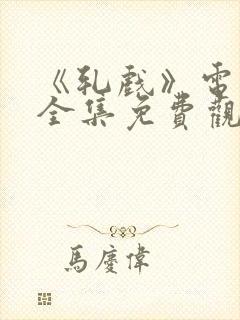 《乳戲》電
全集免費觀
馬慶偉